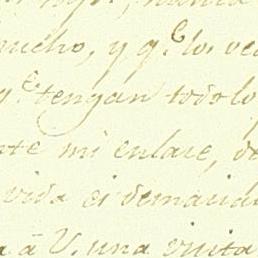 mucho, y q.e los ve
q.e tengan todo lo
nte mi enlace, de
vida es demasiad
a á V. una visita